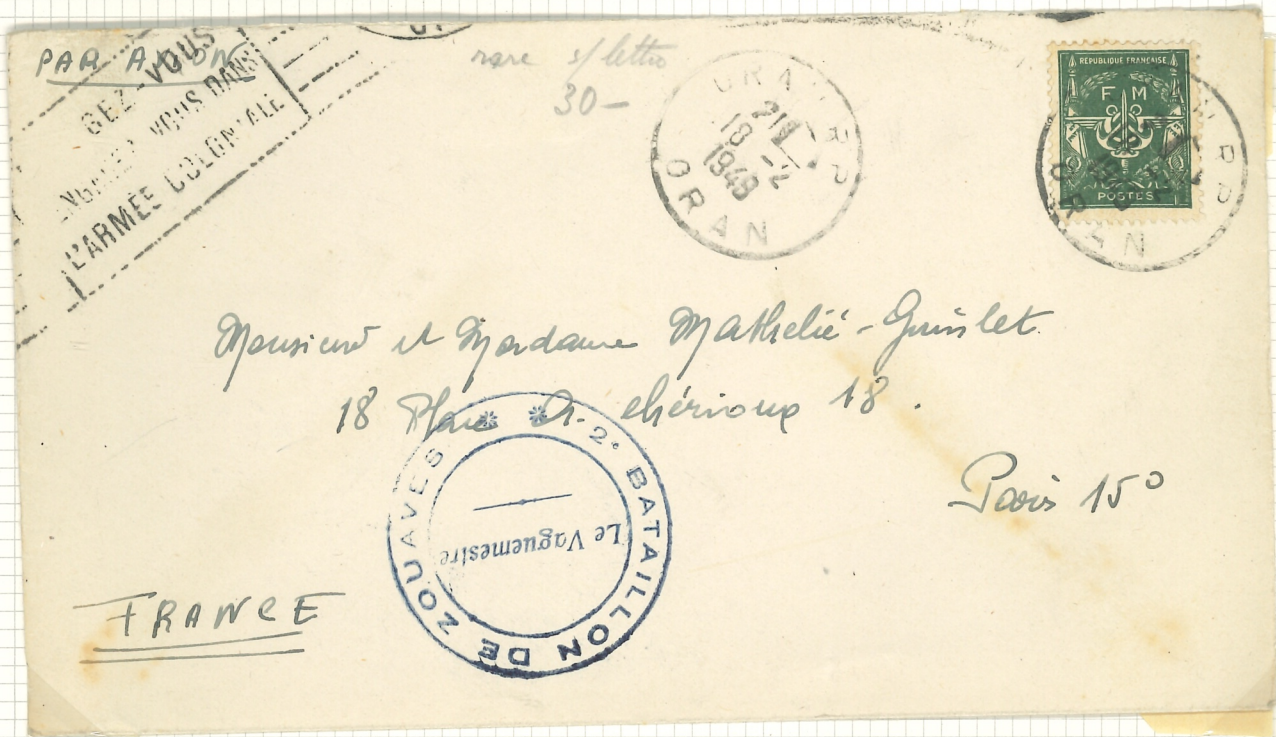 PAR AVION
GEZ-VOUS
ENGAGEZ-VOUS DANS
L'ARMÉE COLONIALE
rare s/ lettre
30-
ORAN RP
21H
18 -2
1949
ORAN
RÉPUBLIQUE FRANÇAISE
F M
POSTES
RP
ORAN
Monsieur et Madame Mathelié-Guinlet
18 Place A. Chérioux 18.
Paris 15°
2e BATAILLON DE ZOUAVES
Le Vaguemestre
FRANCE